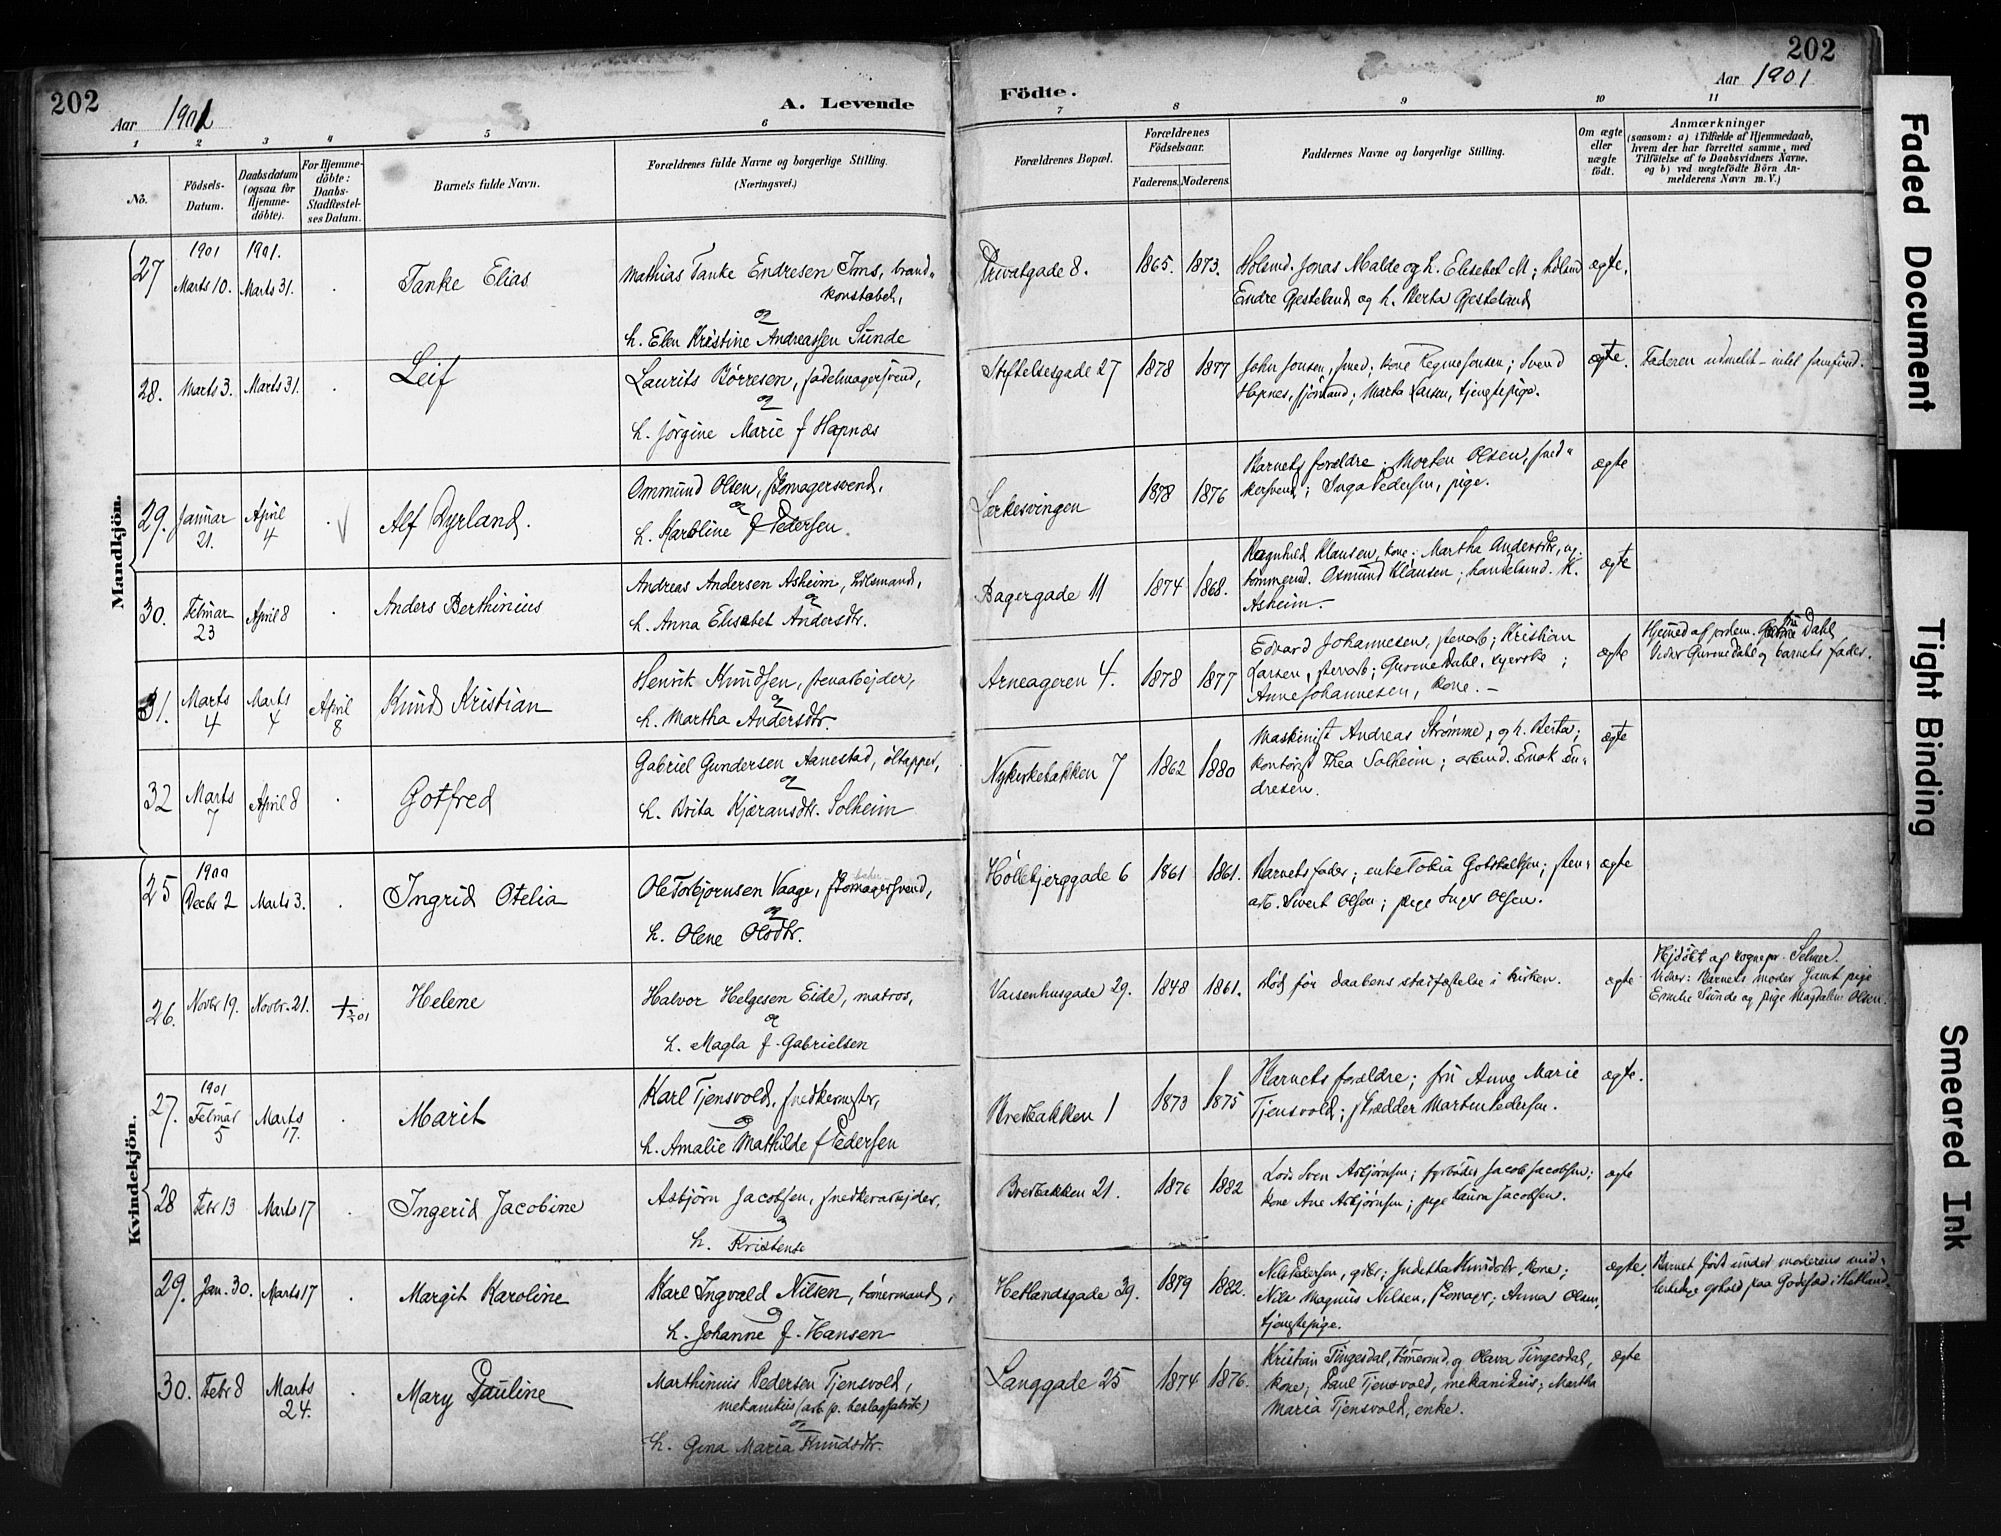 202
Aar 1901
A. Levende
1 2 3 4 5 6
No.
Födsels-Datum.
Daabsdatum (ogsaa for Hjemmedöbte).
For Hjemmedöbte: Daabs-Stadfæstelses Datum.
Barnets fulde Navn.
Forældrenes fulde Navne og borgerlige Stilling.
(Næringsvei.)
Mandkjön.
27 1901 Marts 10. 1901. Marts 31. Tanke Elias
Mathias Tanke Endresen Ims, brand-
konstabel,
og
h. Elen Kristine Andreassen Sunde
28. Marts 3. Marts 31. Leif
Laurits Börresen, sadelmagersvend,
og
h. Jörgine Marie f Hapnæs
29. Januar 21. April 4 Alf Dyrland.
Ommund Olsen, skomagersvend,
og
h. Karoline f Pedersen.
30. Februar 23 April 8 Anders Berthinius
Andreas Andersen Asheim,
og
h. Anna Elisabet Andersdtr.
31. Marts 4 Marts 4 April 8 Knud Kristian
Henrik Knudsen, stenarbejder,
og
h. Martha Andersdtr.
32 Marts 7 April 8 Gotfred
Gabriel Gundersen Aanestad, öltapper,
og
h. Brita Kjæransdtr. Solheim
Kvindekjön.
25 1900 Decbr 2 Marts 3. Ingrid Otelia
Ole Torbjornsen Vaage, skomagersvend,
og
h. Olene Olsdtr.
26. Novbr 19. Novbr. 21. Helene
Halvor Helgesen Eide, matros,
og
h. Magla f. Gabrielsen
27. 1901 Februar 5 Marts 17. Marit
Karl Tjensvold, snedkermester,
og
h. Amalie Mathilde f Pedersen
28 Febr 13 Marts 17 Ingerid Jacobine
Asbjörn Jacobsen, snedkerarbejder,
og
h. Kristense
29. Jan. 30. Marts 17 Margit Karoline
Karl Ingvald Nilsen, tönermand,
og
h. Johanne f. Hansen
30. Febr 8 Marts 24. Mary Pauline
Marthinius Pedersen Tjensvold,
mekanikus (arb. p. beslagfabrik)
og
h. Gina Maria Knudsdtr.
202
Aar 1901
Födte.
7 8 9 10 11
Forældrenes Bopæl.
Forældrenes Födselsaar.
Faderens. Moderens.
Faddernes Navne og borgerlige Stilling.
Om ægte eller uægte födt.
Anmærkninger
(saasom: a) i Tilfælde af Hjemmedaab,
hvem der har forrettet samme, med
Tilföielse af to Daabsvidners Navne,
og b) ved uægtefödte Börn An-
melderens Navn m. V.)
Privatgade 8. 1865. 1873.
Jonas Malde og h. Elisebet M;
Endre Gjesteland og h. Berta Gjesteland
ægte.
Stiftelsesgade 27 1878 1877
John Jonsen, smed, kone Regine Jonsen; Svend
Hapnes, ; Marta Larsen, tjenestepige.
ægte. Faderen udmeldt - intet samfund.
Lerkesvingen 1878 1876
Barnets forældre; Morten Olsen, sned-
kersvend; Inga Pedersen, pige.
ægte
Bagergade 11 1874 1868.
Ragnhild Klausen, kone; Martha Andersdtr, ug.
tömmermd. Osmund Klausen; handelsmd. K.
Asheim.
ægte
Arneageren 4. 1878 1877
Edvard Johannesen, stenarb; Kristian
Larsen, stenarb; Gurine Dahl, syerske;
Anne Johannesen, kone. -
ægte
Hjemmed af jordem. Dahl
Vidner Gurine Dahl og barnets fader.
Nykirkebakken 7 1862 1880
Maskinist Andreas Strømme, og h. Berta;
kontorist Thea Solheim; arbmd. Enok En-
dresen.
ægte
Höllebjerggade 6 1861 1861.
Barnets fader; enke Tobia Gotskalksen; sten-
arb. Sivert Olsen; pige Inger Olsen.
ægte
Vaisenhusgade 29. 1848 1861.
Död før daabens stadfæstelse i kirken.
ægte
Hjdöbt af sognepr. Selmer.
Vidner: Barnets moder samt pige
Emilie Sunde og pige Magdalene Olsen.
Bredbakken 1 1873 1875
Barnets forældre; fru Anne Marie
Tjensvold; skrædder Martin Pedersen.
ægte.
Bredbakken 21. 1876 1882
Lods Sven Asbjørnsen; fyrböder Jacob Jacobsen;
kone Ane Asbjørnsen; pige Laura Jacobsen.
ægte
Hetlandsgade 39. 1879 1882.
Nils Pedersen, ; Indetta Knudsdtr, kone;
Nils Magnus Nilsen, skomager; Anna Olsen,
tjenestepige.
ægte.
Barnet födt under moderens mid-
lertidige ophold paa i Hetland.
Langgade 25 1874 1876.
Kristian Tingesdal, tönermd. og Olava Tingesdal,
kone; Paul Tjensvold, mekanikus; Martha
Maria Tjensvold, enke.
ægte
Faded Document
Tight Binding
Smeared Ink